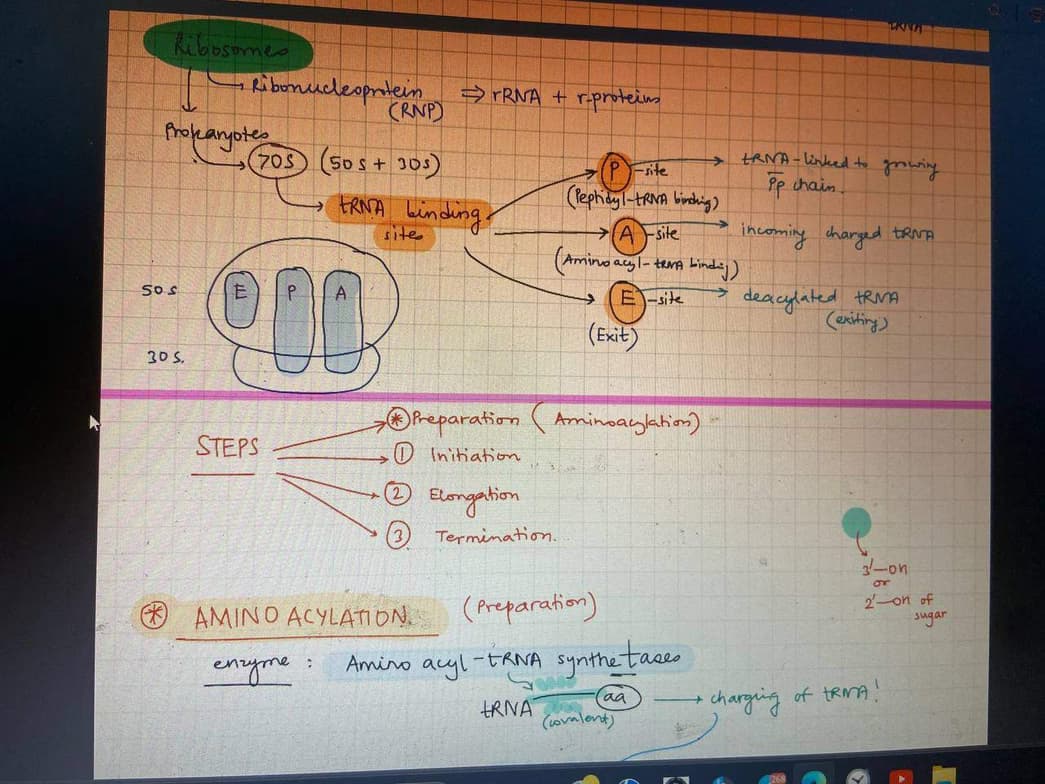 tRNA
Ribosomes
Ribonucleoprotein ⇒ rRNA + r-proteins
(RNP)
Prokaryotes
70S (50S + 30S)
tRNA binding
sites
P -site
(Peptidyl-tRNA binding)
tRNA-linked to growing
PP chain.
A -site
(Amino acyl-tRNA binding)
incoming charged tRNA
E -site
(Exit)
deacylated tRNA
(exiting)
50S
E P A
30S.
STEPS
* Preparation (Aminoacylation)
1 Initiation
2 Elongation
3 Termination.
3'-OH
or
2'-OH of
sugar
* AMINO ACYLATION (Preparation)
enzyme : Amino acyl-tRNA synthetases
tRNA aa → charging of tRNA!
(covalent)
268